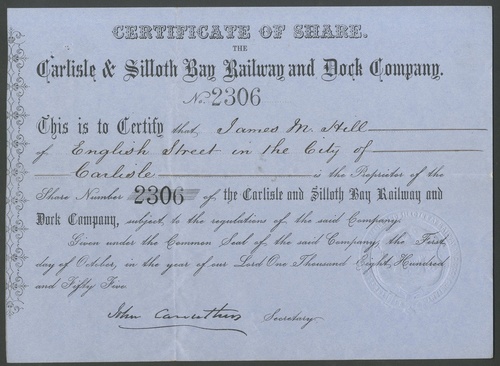 CERTIFICATE OF SHARE.
THE
Carlisle & Silloth Bay Railway and Dock Company.
No. 2306
This is to Certify that, James M. Hill
of English Street in the City of
Carlisle is the Proprietor of the
Share Number 2306 of, the Carlisle and Silloth Bay Railway and
Dock Company, subject to the regulations of the said Company.
Given under the Common Seal of the said Company, the First
day of October, in the year of our Lord One Thousand Eight Hundred
and Fifty Five
John Carruthers Secretary